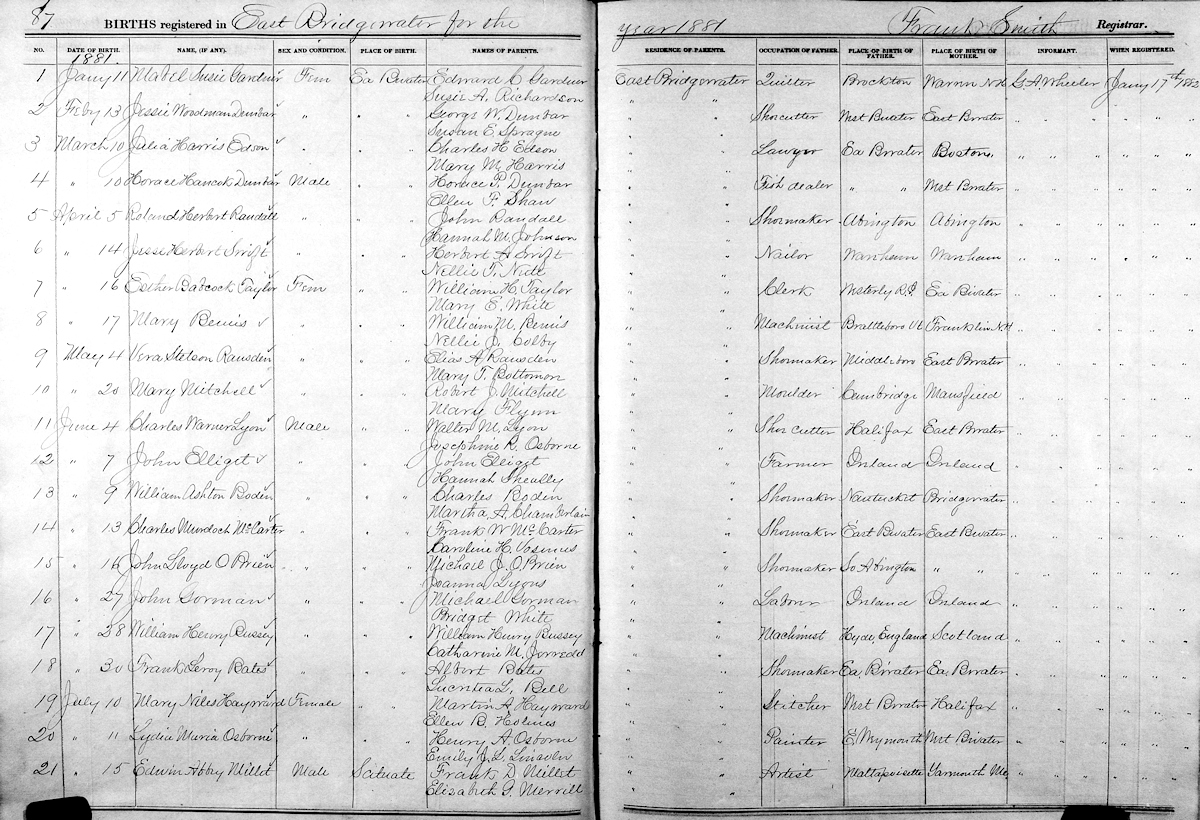 87 BIRTHS registered in East Bridgewater for the year 1881 Frank Smith Registrar.
NO. DATE OF BIRTH. NAME, (IF ANY). SEX AND CONDITION. PLACE OF BIRTH. NAMES OF PARENTS. RESIDENCE OF PARENTS. OCCUPATION OF FATHER. PLACE OF BIRTH OF FATHER. PLACE OF BIRTH OF MOTHER. INFORMANT. WHEN REGISTERED.
1881.
1 Jany 11 Mabell Susie Gardner Fem Ea Bwater Edward C Gardner East Bridgewater Brockton Warren N.H. G. A. Wheeler Jany 17th 1882
Susie A. Richardson " "
2 Feby 13 Jessie Woodman Dunbar " " " George W. Dunbar Shoecutter West Bwater East Brwater " " " "
Susan E. Sprague
3 March 10 Julia Harris Edson " " " Charles H. Edson Lawyer Ea Brwater Boston, " " " "
Mary M. Harris
4 " 10 Horace Hancock Dunbar Male " " Horace P. Dunbar Fish dealer " " West Brwater " " " "
Ellen F. Shaw
5 April 5 Roland Herbert Randall " " " John Randall Shoemaker Abington Abington " " " "
Hannah M. Johnson
6 " 14 Jesse Herbert Swift " " " Herbert A Swift Nailor Wareham Wareham " " " "
Nellie T. Nute
7 " 16 Esther Babcock Taylor Fem " " William H. Taylor Clerk Westerly R.I. Ea Bwater " " " "
Mary E. White
8 " 17 Mary Bemis " " " William M. Bemis Machinist Brattleboro Vt Franklin N.H " " " "
Nellie J. Colby
9 May 4 Vera Stetson Ramsden " " " Elias A Ramsden Shoemaker Middleboro East Brwater " " " "
Mary T. Bottomon
10 " 20 Mary Mitchell " " " Robert J. Mitchell Moulder Cambridge Mansfield " " " "
Mary Flynn
11 June 4 Charles Warner Lyon Male " " Walter M. Lyon Shoe cutter Halifax East Brwater " " " "
Josephine R. Osborne
12 " 7 John Elliget " " " John Elliget Farmer Ireland Ireland " " " "
Hannah Sheally
13 " 9 William Ashton Boden " " " Charles Boden Shoemaker Nantucket Bridgewater " " " "
Martha A. Chamberlain
14 " 13 Charles Murdoch McCarter " " " Frank W McCarter Shoemaker East Bwater East Bwater " " " "
Caroline H. Vosmus
15 " 16 John Lloyd O'Brien " " " Michael J. O'Brien Shoemaker So. Abington " " " " " "
Joanna Lyons
16 " 27 John Gorman " " " Michael Gorman Labour Ireland Ireland " " " "
Bridget White
17 " 28 William Henry Bussey " " " William Henry Bussey Machinist Hyde, England Scotland " " " "
Catharine M.
18 " 30 Frank Leroy Bates " " " Albert Bates Shoemaker Ea, Brwater Ea, Brwater " " " "
Lucretia L. Bell
19 July 10 Mary Niles Hayward Female " " Martin A. Hayward Stitcher West Brwater Halifax " " " "
Ellen B. Holmes
20 " 11 Lydia Maria Osborne " " " Henry A. Osborne Painter E, Weymouth West Bwater " " " "
Emily J. L. Lincoln
21 " 15 Edwin Abbey Millet Male Scituate Frank D. Millet Artist Mattapoisette Yarmouth Me " " " "
Elizabeth G. Merrill